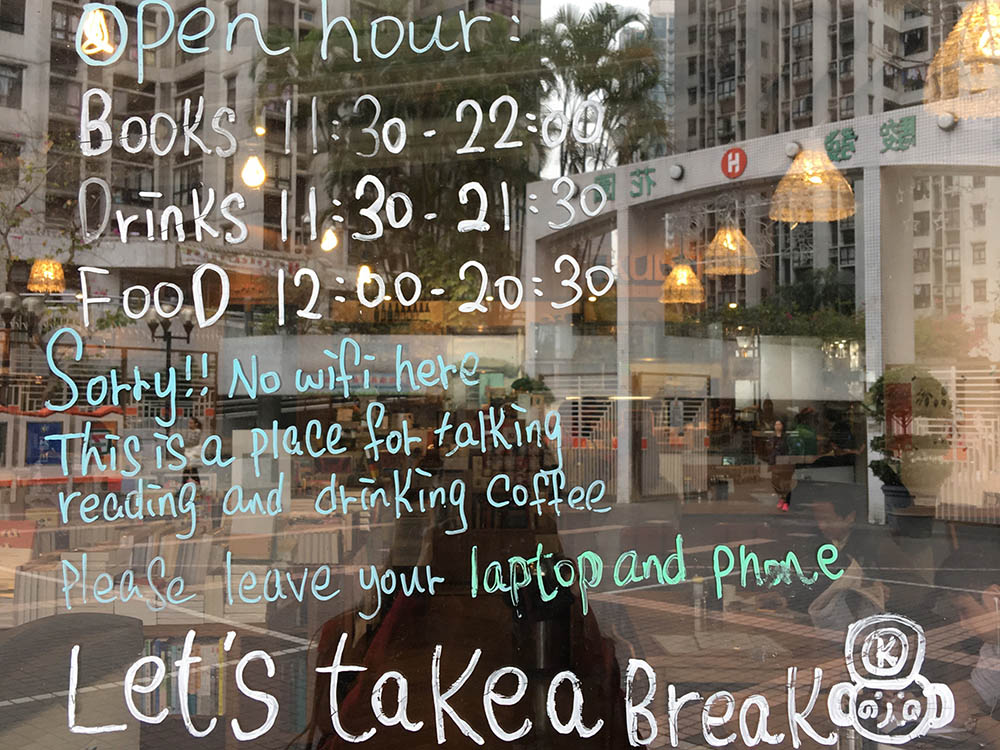 Open hour:
Books 11:30 - 22:00
Drinks 11:30 - 21:30
FooD 12:00 - 20:30
Sorry!! No wifi here
This is a place for talking
reading and drinking coffee
Please leave your laptop and phone
Let's take a Break
K
H
花